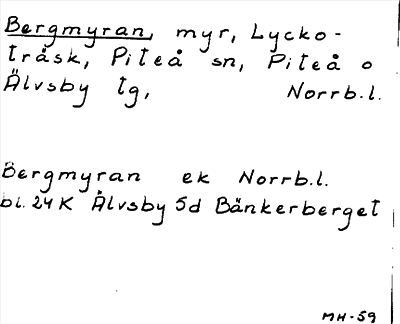 Bergmyran, myr, Lycko-
träsk, Piteå sn, Piteå o
Älvsby tg, Norrb.l.
Bergmyran ek Norrb.l.
bl. 24K Älvsby 5d Bänkerberget
MH-59